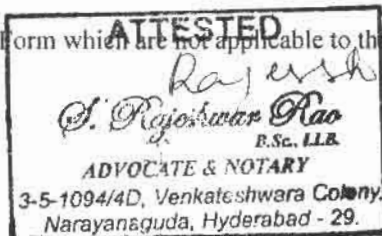 Form which are not applicable to th
ATTESTED
Rajessh
S. Rajeshwar Rao
B.Sc., LLB.
ADVOCATE & NOTARY
3-5-1094/4D, Venkateshwara Colony,
Narayanaguda, Hyderabad - 29.